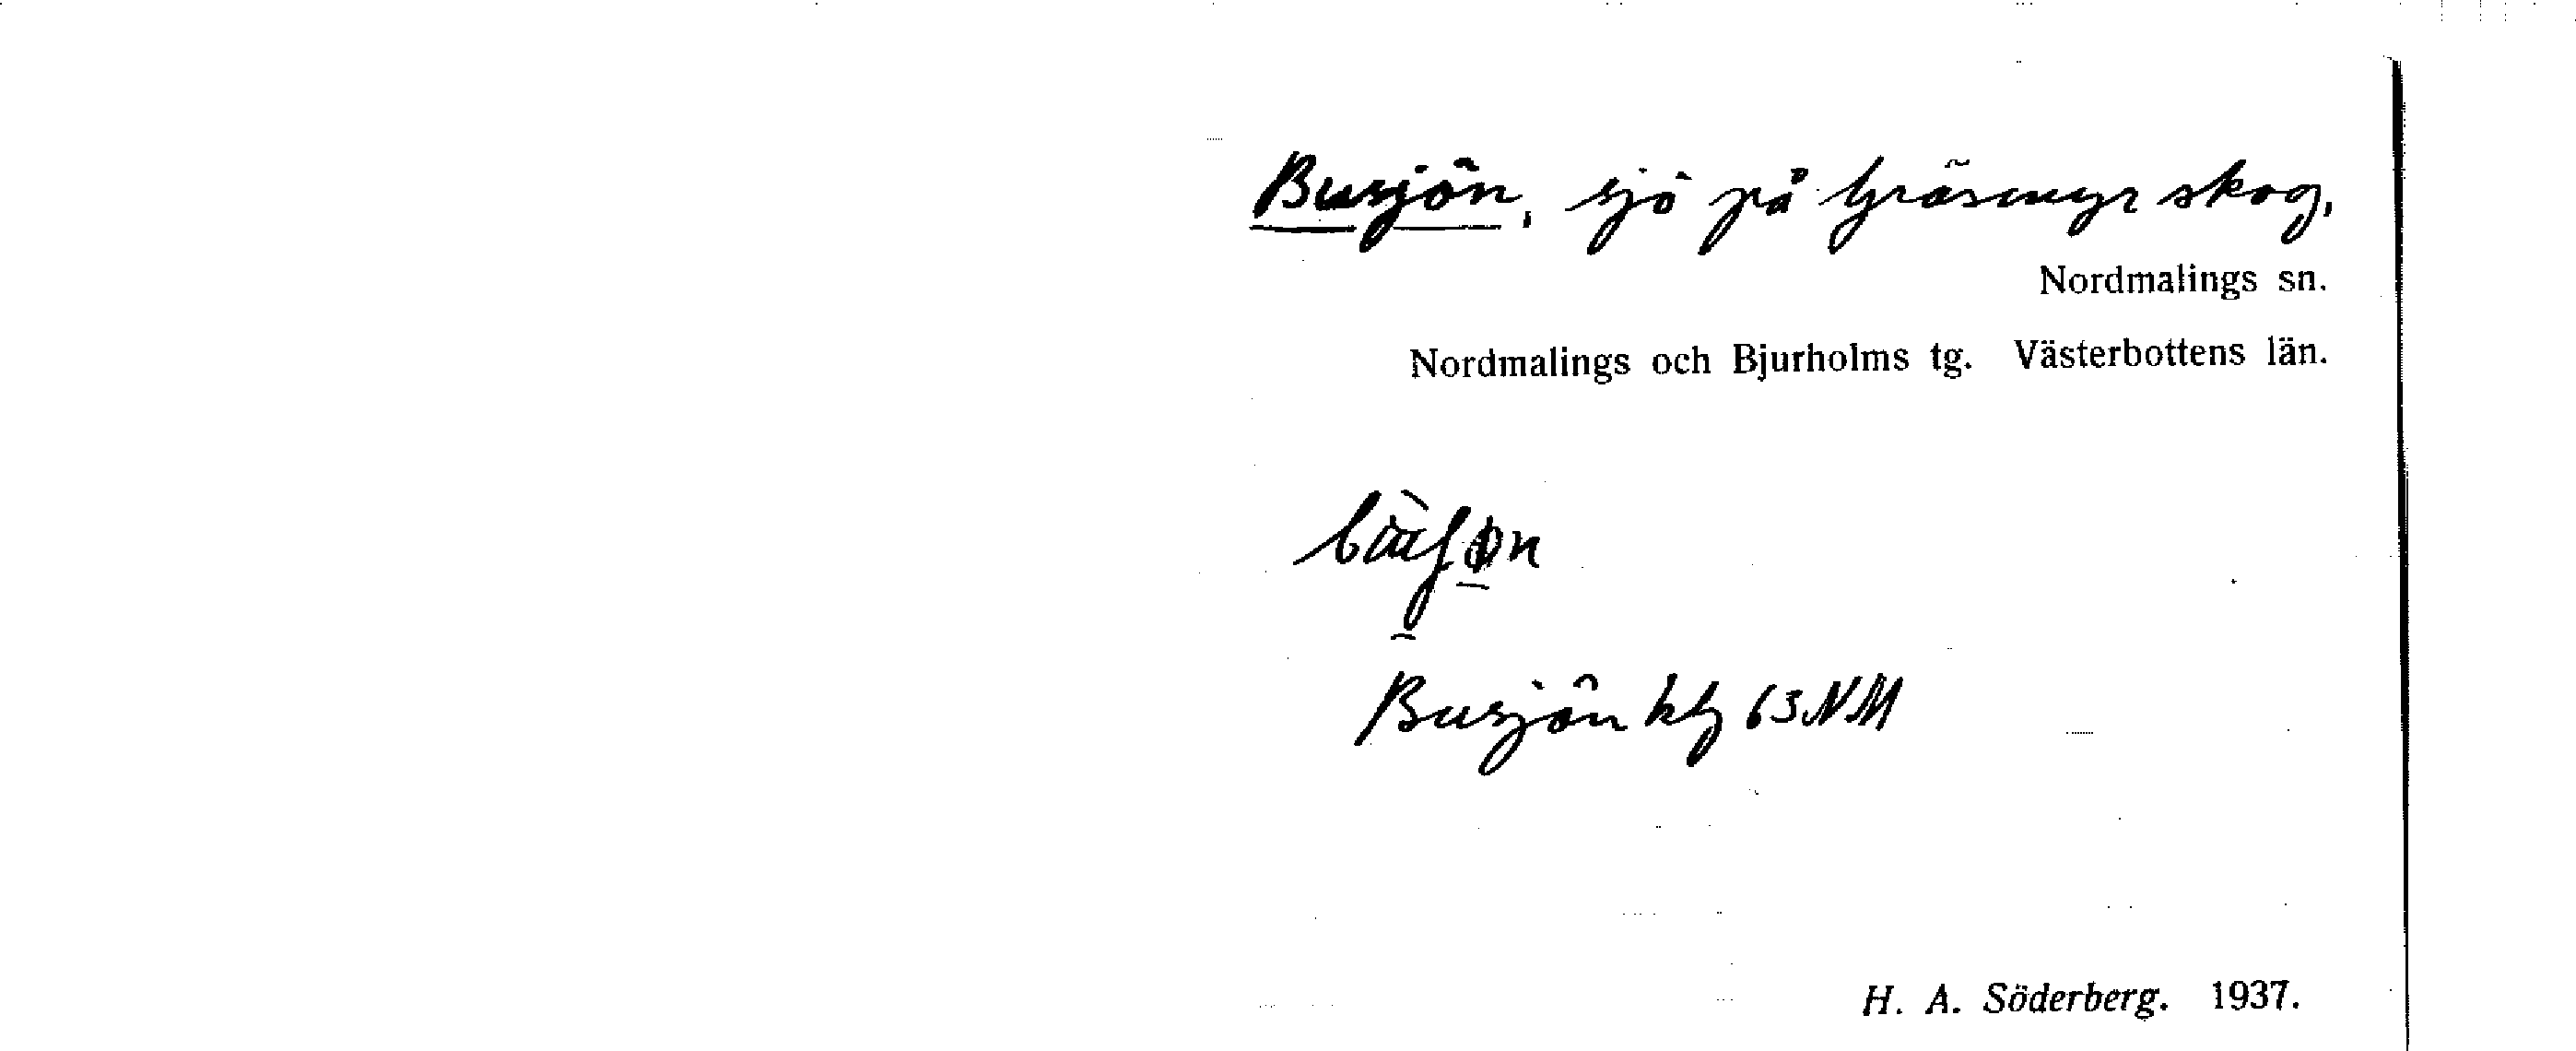 Busjön, sjö på Gräsmyr skog,
Nordmalings sn.
Nordmalings och Bjurholms tg. Västerbottens län.
Busjön 63 NM
H. A. Söderberg. 1937.